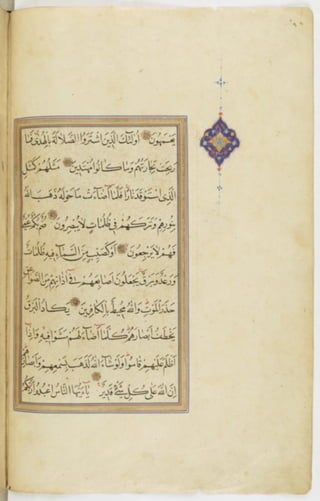 يعمهون اولئك الذين اشتروا الضلالة بالهدى فما
ربحت تجارتهم وما كانوا مهتدين مثلهم كمثل
الذى استوقد نارا فلما اضاءت ما حوله ذهب الله
بنورهم وتركهم فى ظلمات لا يبصرون صم بكم عمى
فهم لا يرجعون او كصيب من السماء فيه ظلمات
ورعد وبرق يجعلون اصابعهم فى اذانهم من الصواعق
حذر الموت والله محيط بالكافرين يكاد البرق
يخطف ابصارهم كلما اضاء لهم مشوا فيه واذا
اظلم عليهم قاموا ولو شاء الله لذهب بسمعهم وابصارهم
ان الله على كل شىء قدير يا ايها الناس اعبدوا ربكم